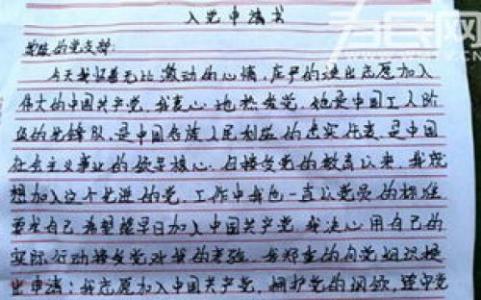 入党申请书
尊敬的党支部：
今天我怀着无比激动的心情，庄严的递出志愿加入
伟大的中国共产党，我衷心地热爱党，她是中国工人阶
级的先锋队，是中国各族人民利益的忠实代表，是中国
社会主义事业的领导核心。自接受党的教育以来，我就
想加入这个先进的党，工作中我也一直以党员的标准
要求自己希望能早日加入中国共产党，我决心用自己的
实际行动接受党对我的考验，我郑重的向党组织提
出申请：我志愿加入中国共产党，拥护党的纲领，遵守党
为民网